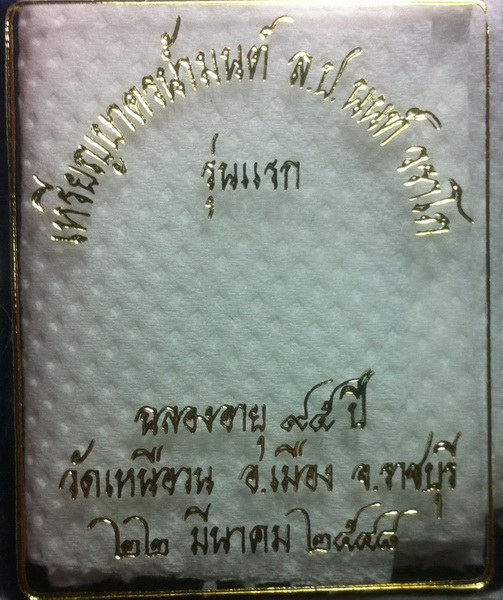 เหรียญบาตรน้ำมนต์ ล.ป.นนท์ วราโภ
รุ่นแรก
ฉลองอายุ ๙๕ ปี
วัดเหนือวน อ.เมือง จ.ราชบุรี
๒๒ มีนาคม ๒๕๔๘